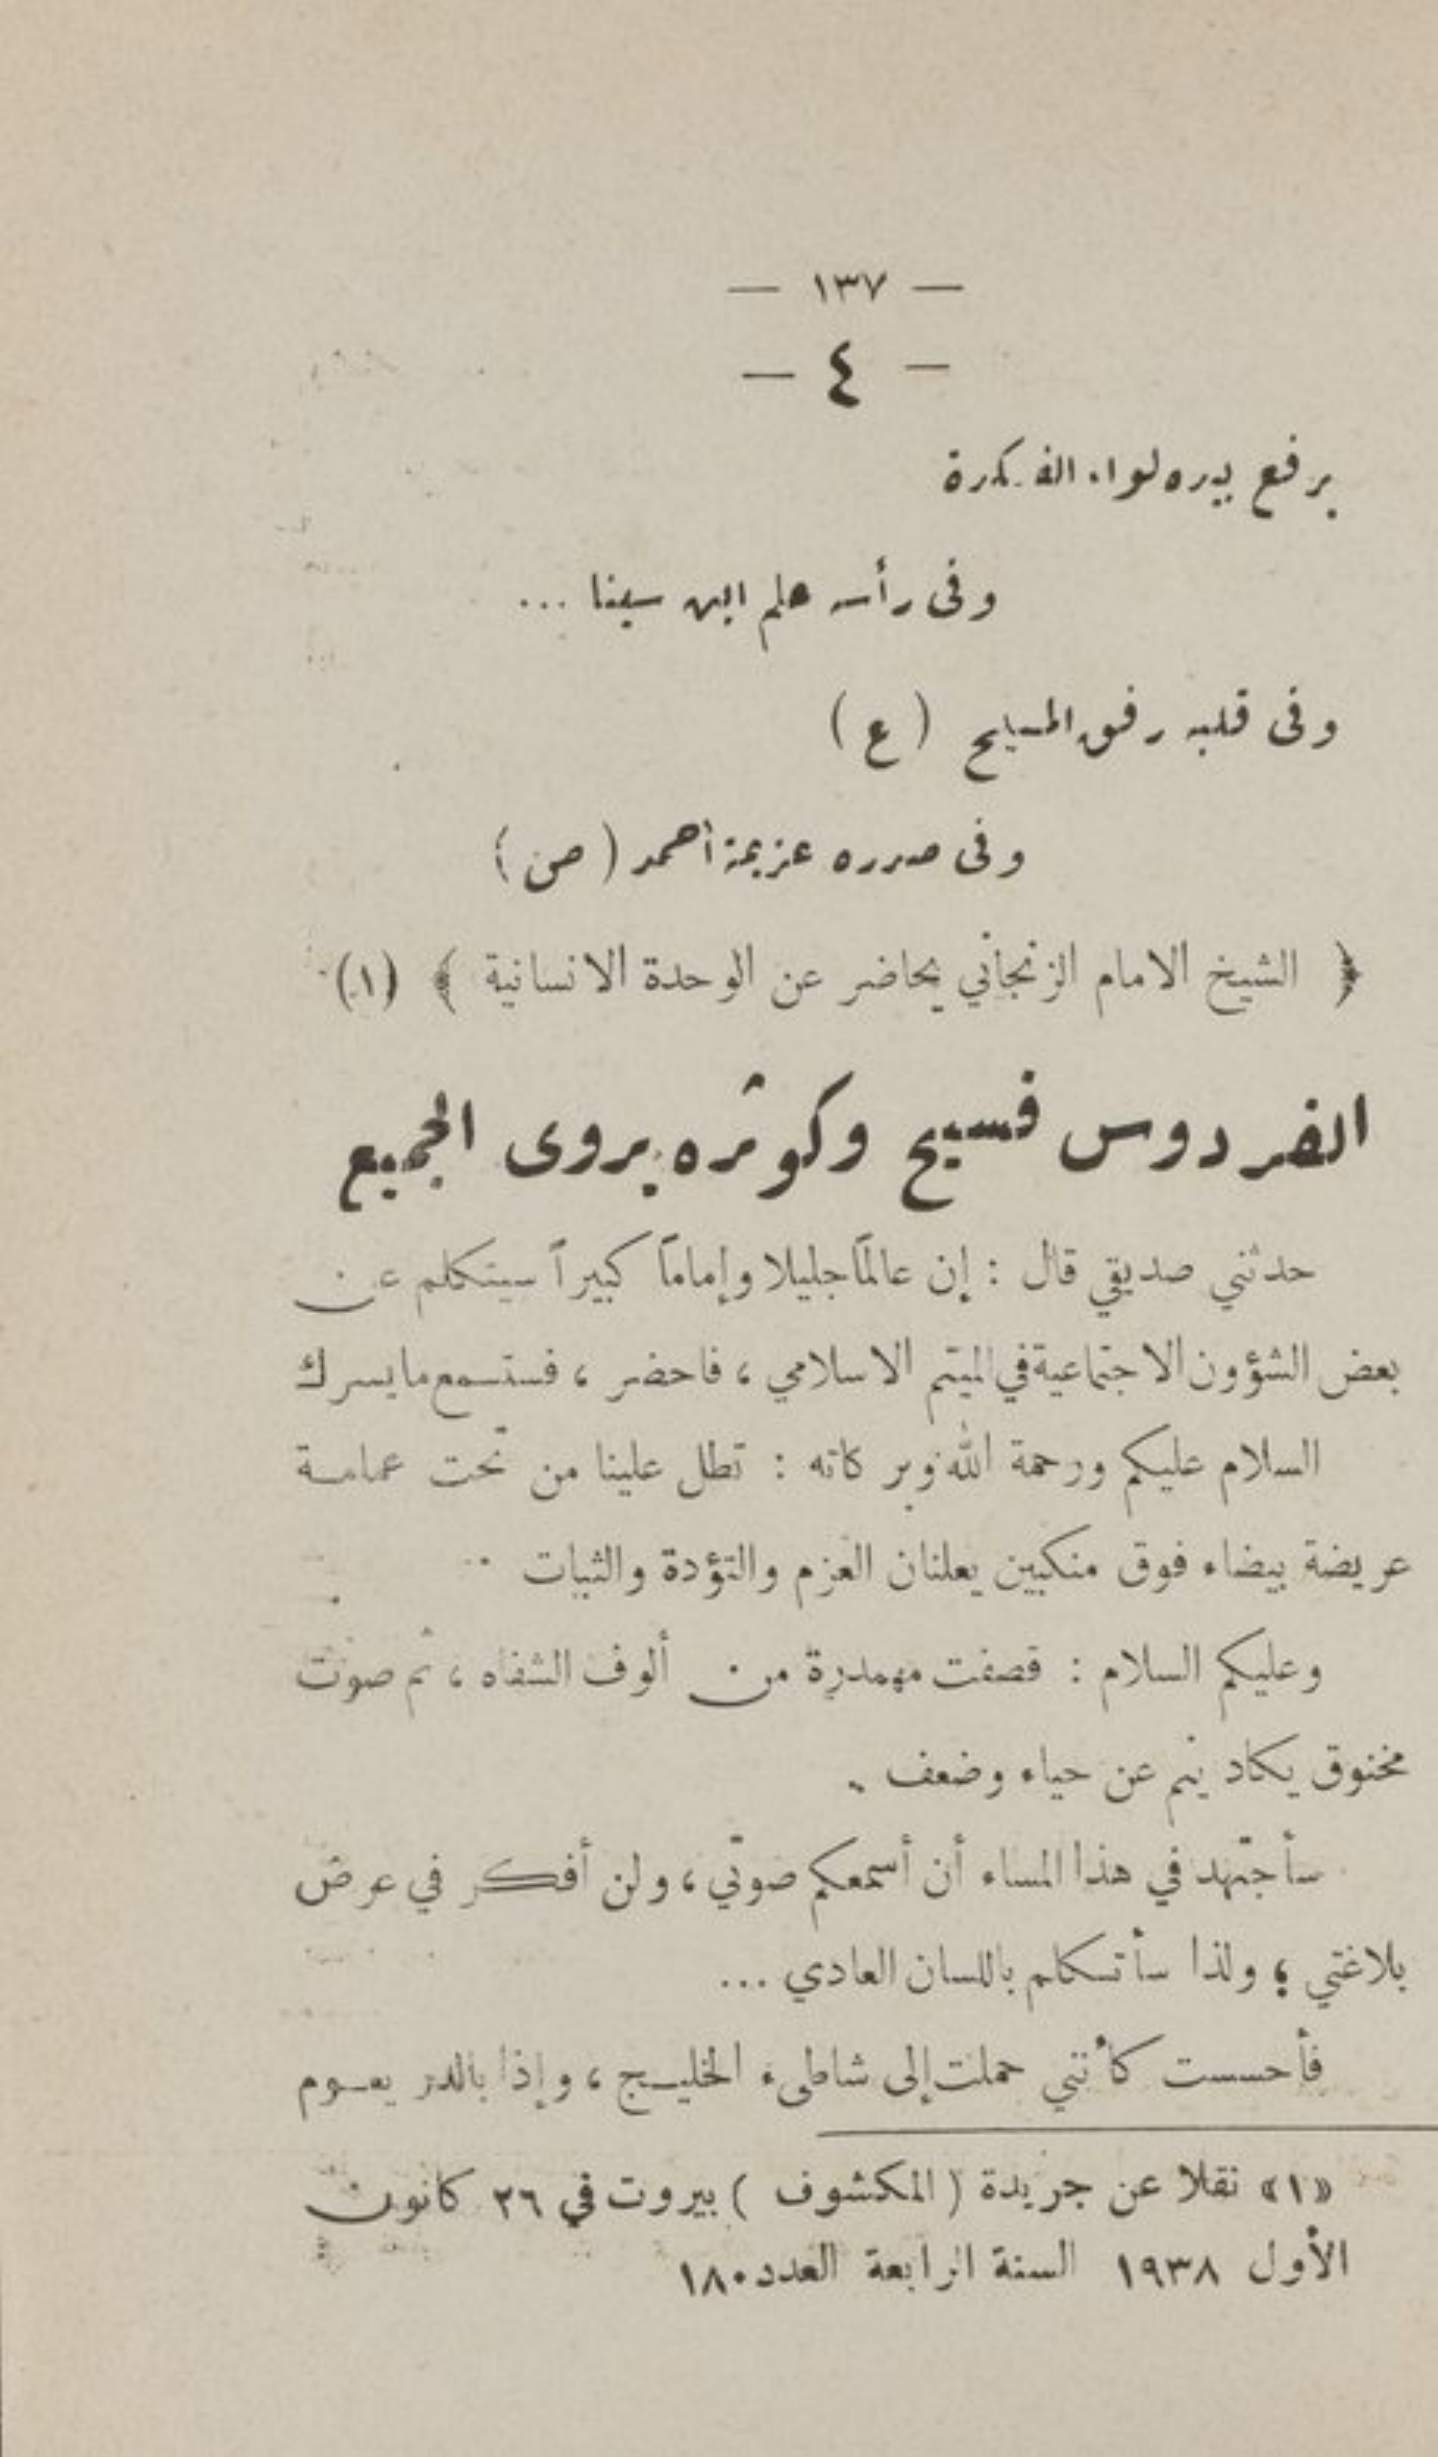 — ١٣٧ —
— ٤ —
يرفع بيده لواء الفكرة
وفى رأسه علم ابن سينا ...
وفى قلبه رفق المسيح (ع)
وفى صدره عزيمة أحمد (ص)
﴿ الشيخ الامام الزنجاني يحاضر عن الوحدة الانسانية ﴾ (١)
الفردوس فسيح وكوثره يروى الجميع
حدثني صديقي قال : إن عالماً جليلا وإماماً كبيراً سيتكلم عن
بعض الشؤون الاجتماعية في الميتم الاسلامي ، فاحضر ، فستسمع ما يسرك
السلام عليكم ورحمة الله وبركاته : تطل علينا من تحت عمامة
عريضة بيضاء فوق منكبين يعلنان العزم والتؤدة والثبات ..
وعليكم السلام : قصفت مهمدرة من ألوف الشفاه ، ثم صوت
مخنوق يكاد ينم عن حياء وضعف .
سأجتهد في هذا المساء أن أسمعكم صوتي ، ولن أفكر في عرض
بلاغتي ؛ ولذا سأتكلم باللسان العادي ...
فأحسست كأنني حملت إلى شاطىء الخليج ، وإذا بالدر يعوم
«١» نقلا عن جريدة ( المكشوف ) بيروت في ٢٦ كانون
الأول ١٩٣٨ السنة الرابعة العدد ١٨٠